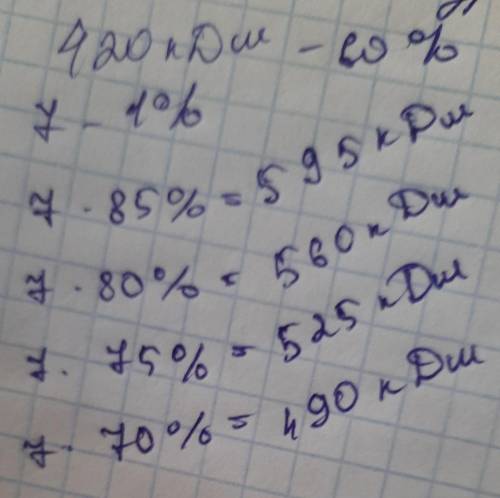 420 кДж – 60%
7 – 1%
7 · 85% = 595 кДж
7 · 80% = 560 кДж
7 · 75% = 525 кДж
7 · 70% = 490 кДж